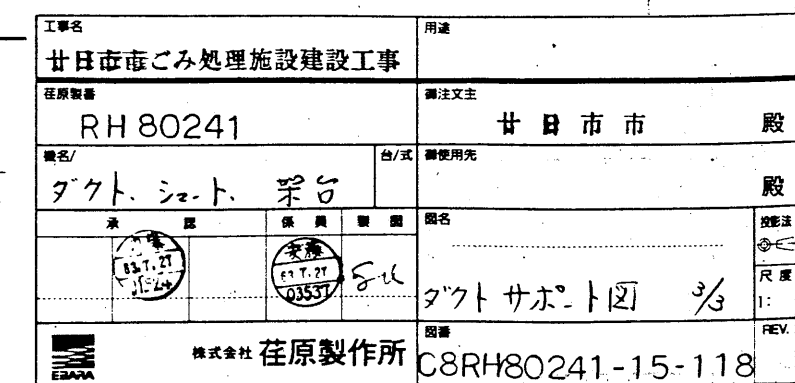 工事名
廿日市市ごみ処理施設建設工事
用途
荏原製番
RH 80241
御注文主
廿日市市 殿
機名/
台/式
ダクト、シュート、架台
御使用先
殿
承 認
係 員
製 図
83.7.27
安藤
83.7.27
03537
図名
ダクトサポート図 3/3
投影法
尺度
1:
EBARA
株式会社 荏原製作所
図番
C8RH80241-15-118
REV.